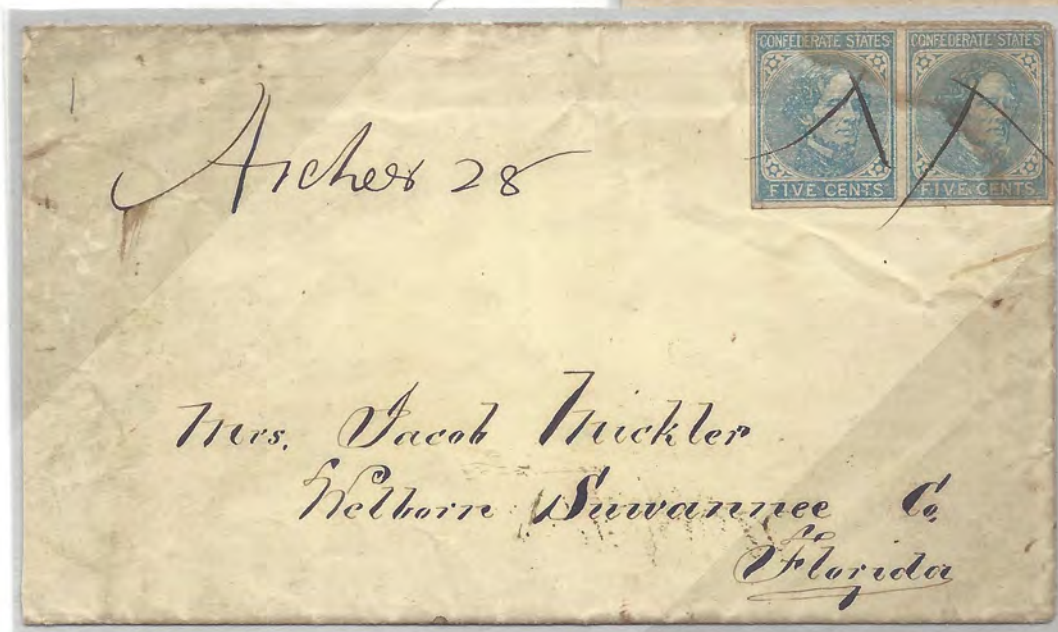 CONFEDERATE STATES CONFEDERATE STATES
FIVE CENTS FIVE CENTS
Archer 28
Mrs. Jacob Mickler
Welborn Suwannee Co
Florida